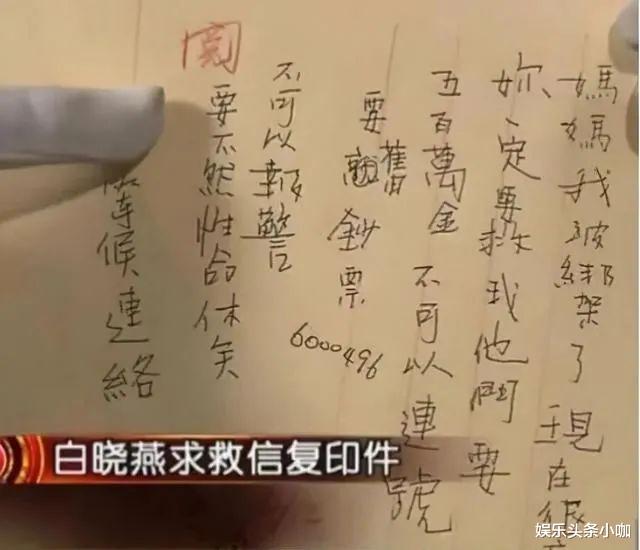 媽媽我被綁架了現在很
妳一定要救我他們要
五百萬金 不可以連號
要舊鈔票
6000496
不可以報警
要不然性命休矣
等候連絡
白晓燕求救信复印件
娱乐头条小咖